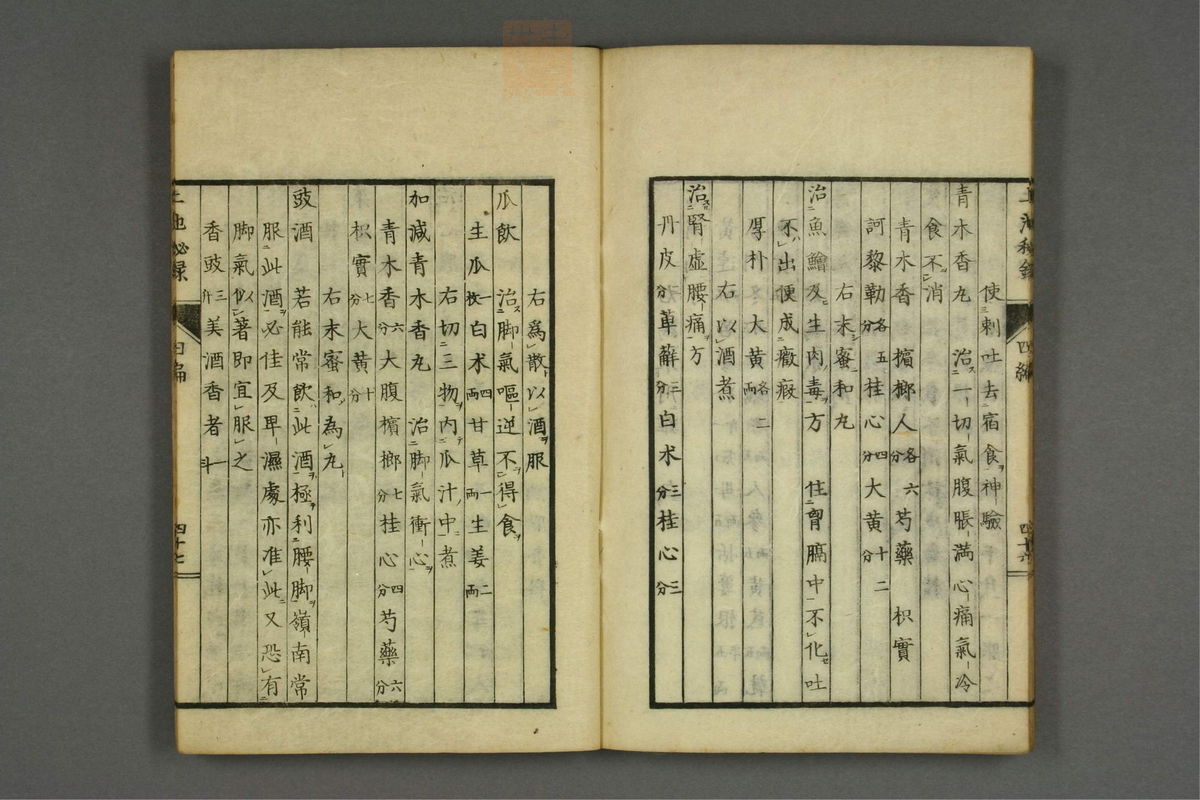 使刺吐去宿食神驗
青木香丸 治一切氣腹脹滿心痛氣冷
食不消
青木香 檳榔人各六分 芍藥 枳實
訶黎勒各五分 桂心四分 大黃十二分
右末蜜和丸
治魚鱠及生肉毒方 住胷膈中不化吐
不出便成癥瘕
厚朴 大黃各二兩
右以酒煮
治腎虛腰痛方
丹皮二分 萆薢三分 白术三分 桂心三分
四十六
右爲散以酒服
瓜飲 治脚氣嘔逆不得食
生瓜一枚 白术四兩 甘草一兩 生姜二兩
右切三物內瓜汁中煮
加減青木香丸 治脚氣衝心
青木香六分 大腹檳榔七分 桂心四分 芍藥六分
枳實七分 大黃十分
右末蜜和為丸
豉酒 若能常飲此酒極利腰脚嶺南常
服此酒必佳及卑濕處亦准此又恐有
脚氣似著即宜服之
香豉三升 美酒香者一斗
四編
四十七